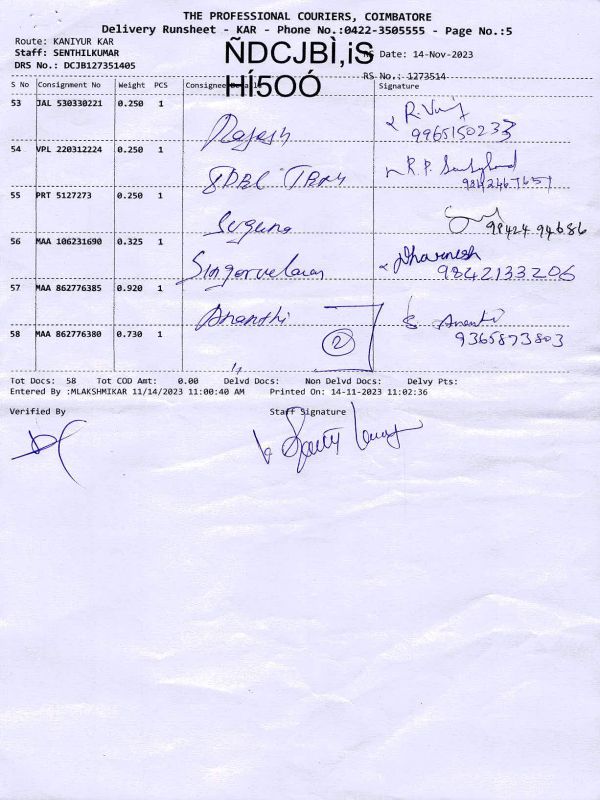 THE PROFESSIONAL COURIERS, COIMBATORE
Delivery Runsheet - KAR - Phone No.:0422-3505555 - Page No.:5
Route: KANIYUR KAR
Staff: SENTHILKUMAR
DRS No.: DCJB127351405
ÑDCJBÌ,iS
HÍ5OÓ
Date: 14-Nov-2023
RS No.: 1273514
S No Consignment No Weight PCS Consignee Signature
53 JAL 530330221 0.250 1 Rajesh
9965150233
54 VPL 220312224 0.250 1 R.P.
55 PRT 5127273 0.250 1 Suguna 98424 94686
56 MAA 106231690 0.325 1 Singaravelavan Dharinesh
9842133206
57 MAA 862776385 0.920 1 Ananthi
58 MAA 862776380 0.730 1 2
9365873803
Tot Docs: 58 Tot COD Amt: 0.00 Delvd Docs: Non Delvd Docs: Delvy Pts:
Entered By :MLAKSHMIKAR 11/14/2023 11:00:40 AM Printed On: 14-11-2023 11:02:36
Verified By Staff Signature